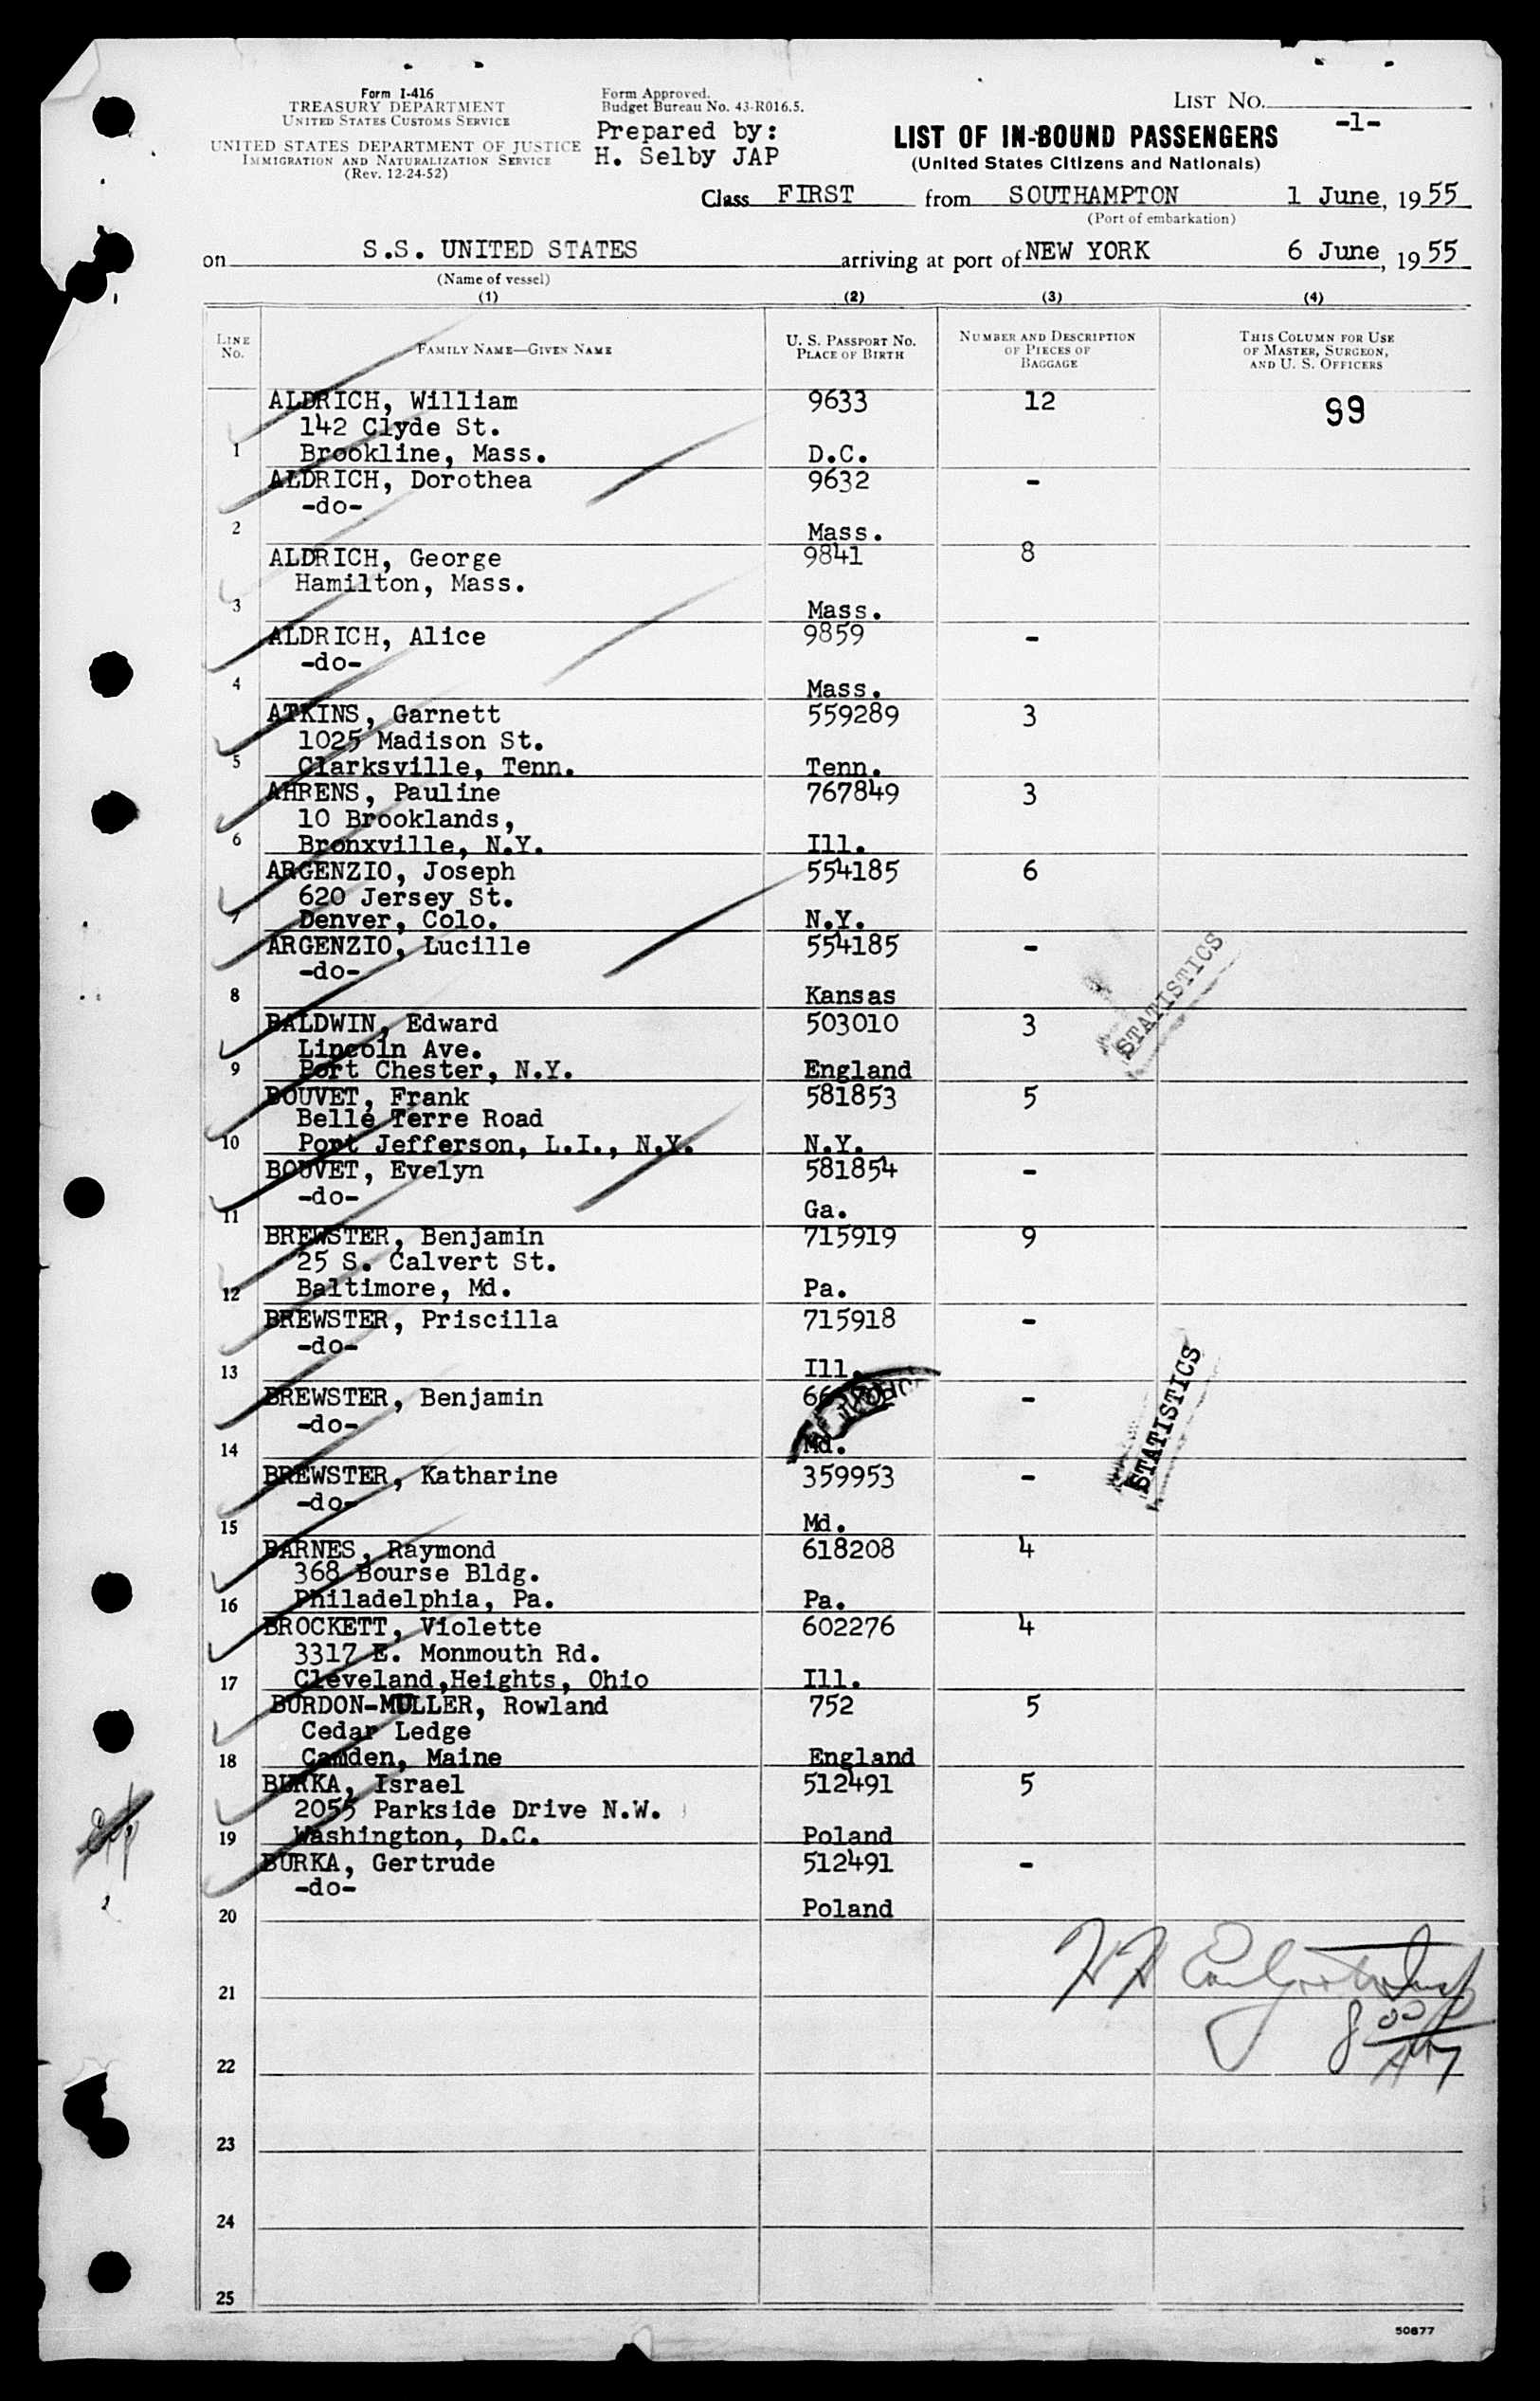 Form I-416
TREASURY DEPARTMENT
UNITED STATES CUSTOMS SERVICE
UNITED STATES DEPARTMENT OF JUSTICE
IMMIGRATION AND NATURALIZATION SERVICE
(Rev. 12-24-52)
Form Approved.
Budget Bureau No. 43-R016.5.
Prepared by:
H. Selby JAP
LIST NO.
-1-
LIST OF IN-BOUND PASSENGERS
(United States Citizens and Nationals)
Class FIRST from SOUTHAMPTON 1 June, 1955
(Port of embarkation)
on S.S. UNITED STATES arriving at port of NEW YORK 6 June, 1955
(Name of vessel)
(1) (2) (3) (4)
LINE NO. FAMILY NAME—GIVEN NAME U. S. PASSPORT NO. PLACE OF BIRTH NUMBER AND DESCRIPTION OF PIECES OF BAGGAGE THIS COLUMN FOR USE OF MASTER, SURGEON, AND U. S. OFFICERS
ALDRICH, William 9633 12 99
142 Clyde St.
1 Brookline, Mass. D.C.
ALDRICH, Dorothea 9632 -
-do-
2 Mass.
ALDRICH, George 9841 8
Hamilton, Mass.
3 Mass.
ALDRICH, Alice 9859 -
-do-
4 Mass.
ATKINS, Garnett 559289 3
1025 Madison St.
5 Clarksville, Tenn. Tenn.
AHRENS, Pauline 767849 3
10 Brooklands,
6 Bronxville, N.Y. Ill.
ARGENZIO, Joseph 554185 6
620 Jersey St.
7 Denver, Colo. N.Y.
ARGENZIO, Lucille 554185 -
-do-
8 Kansas
STATISTICS
BALDWIN, Edward 503010 3
Lincoln Ave.
9 Port Chester, N.Y. England
BOUVET, Frank 581853 5
Belle Terre Road
10 Port Jefferson, L.I., N.Y. N.Y.
BOUVET, Evelyn 581854 -
-do-
11 Ga.
BREWSTER, Benjamin 715919 9
25 S. Calvert St.
12 Baltimore, Md. Pa.
BREWSTER, Priscilla 715918 -
-do-
13 Ill.
BREWSTER, Benjamin -
-do-
14 Md.
STATISTICS
BREWSTER, Katharine 359953 -
-do-
15 Md.
BARNES, Raymond 618208 4
368 Bourse Bldg.
16 Philadelphia, Pa. Pa.
BROCKETT, Violette 602276 4
3317 E. Monmouth Rd.
17 Cleveland,Heights, Ohio Ill.
BURDON-MULLER, Rowland 752 5
Cedar Ledge
18 Camden, Maine England
BURKA, Israel 512491 5
2055 Parkside Drive N.W.
19 Washington, D.C. Poland
BURKA, Gertrude 512491 -
-do-
20 Poland
21
22
23
24
25
50877